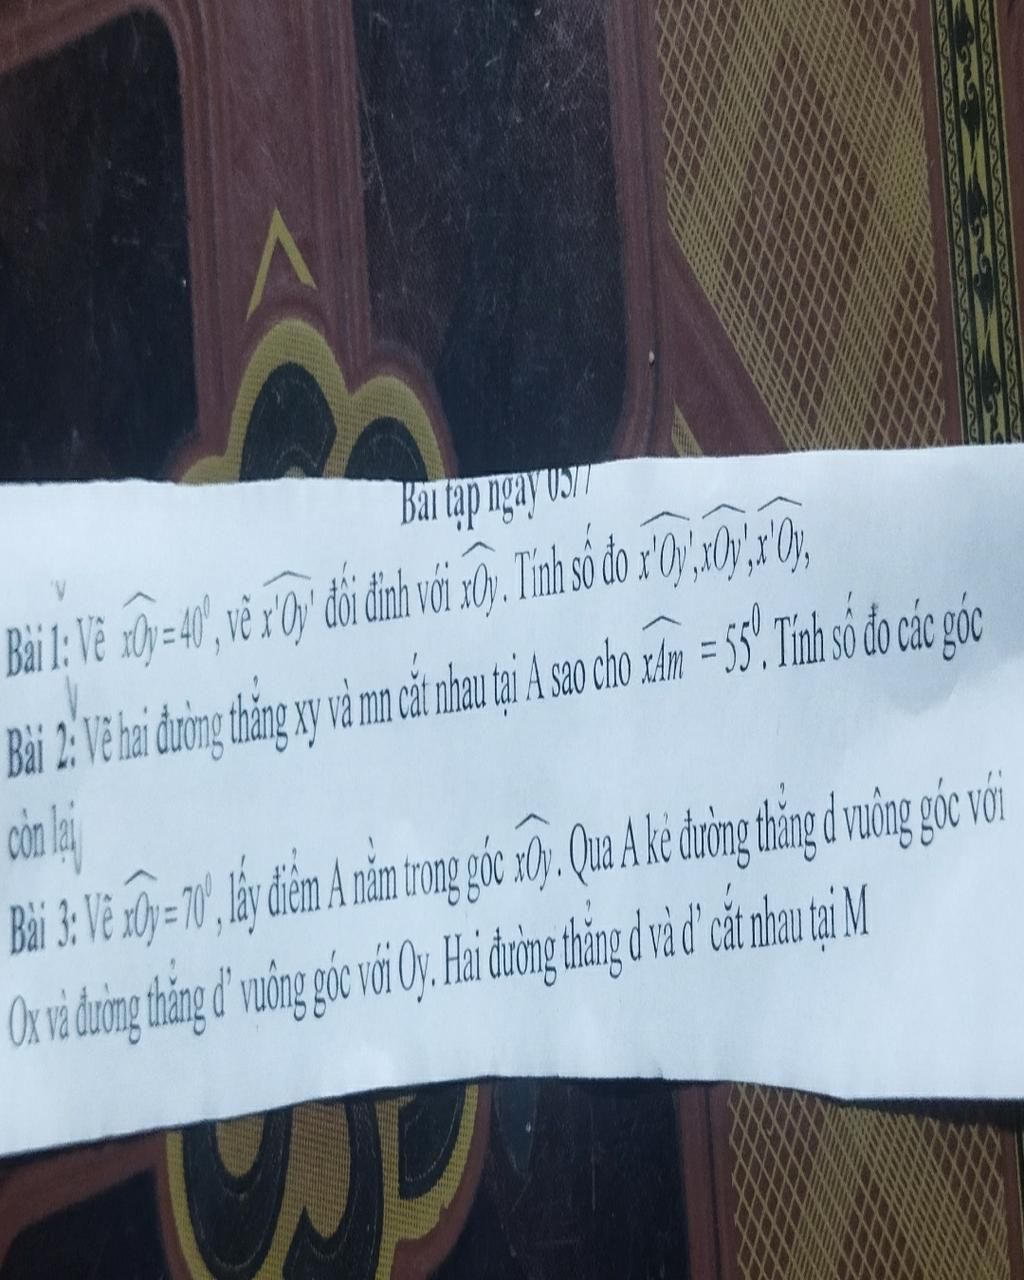 Bài tập ngày 05/7
Bài 1: Vẽ $\widehat{xOy}$ = 40⁰, vẽ $\widehat{x'Oy'}$ đối đỉnh với $\widehat{xOy}$. Tính số đo $\widehat{x'Oy'}$, $\widehat{xOy'}$, $\widehat{x'Oy}$,
Bài 2: Vẽ hai đường thẳng xy và mn cắt nhau tại A sao cho $\widehat{xAm}$ = 55⁰. Tính số đo các góc
còn lại
Bài 3: Vẽ $\widehat{xOy}$ = 70⁰, lấy điểm A nằm trong góc $\widehat{xOy}$. Qua A kẻ đường thẳng d vuông góc với
Ox và đường thẳng d’ vuông góc với Oy. Hai đường thẳng d và d’ cắt nhau tại M